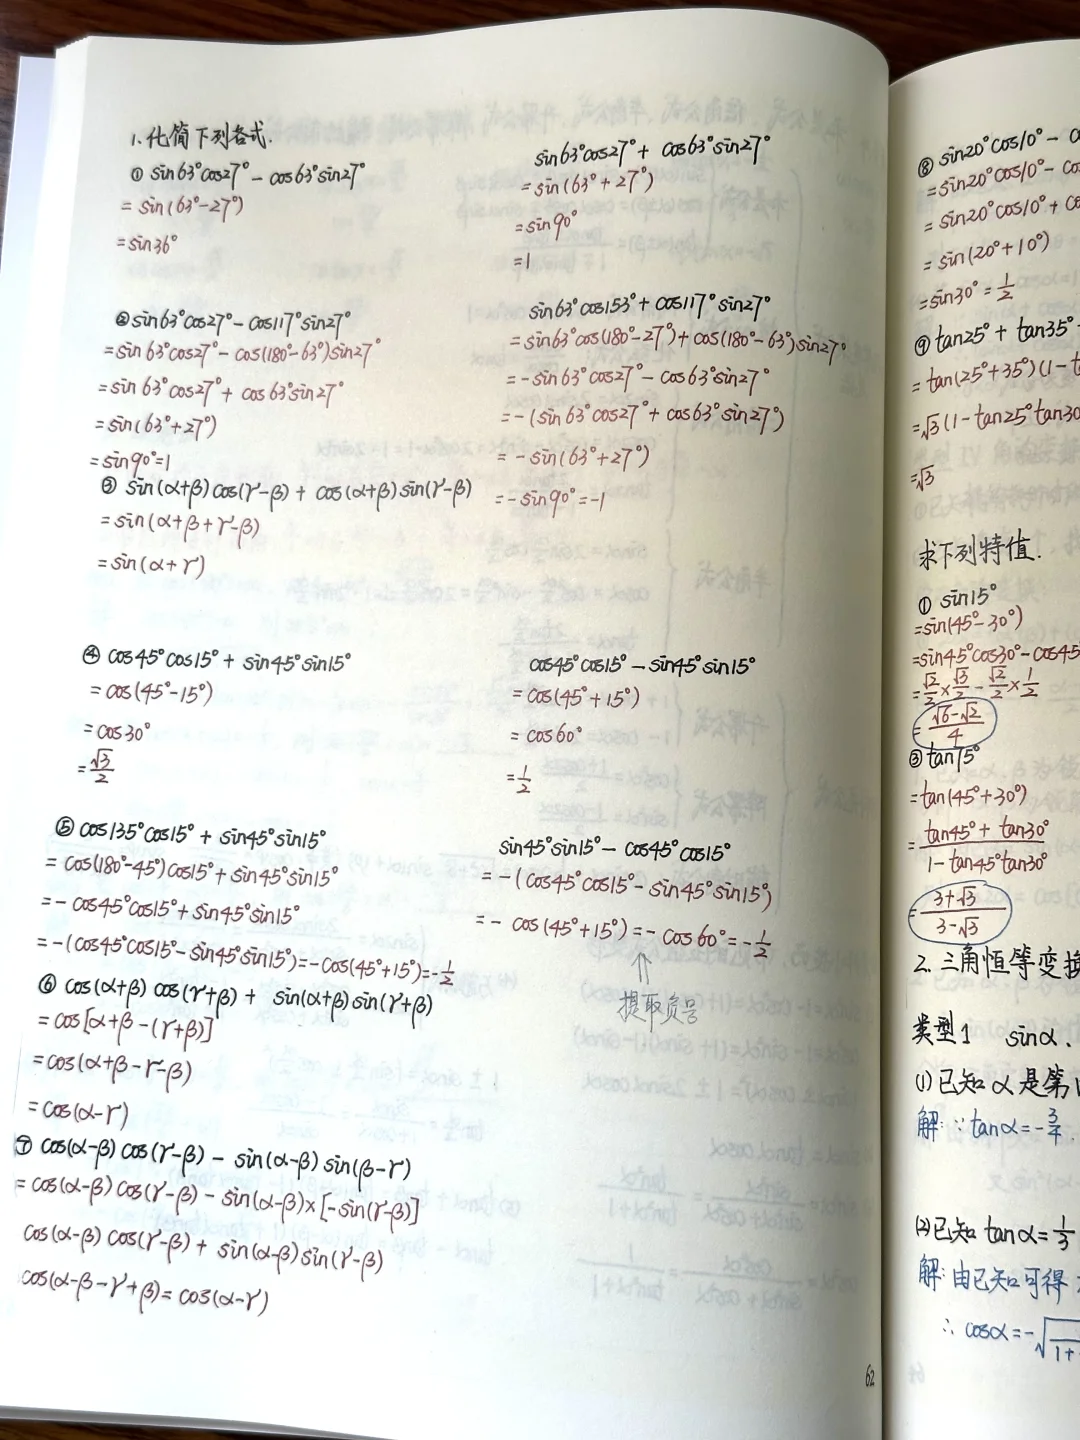 1.化简下列各式.
① sin63°cos27° - cos63°sin27°
= sin(63°-27°)
= sin36°
sin63°cos27° + cos63°sin27°
= sin(63°+27°)
= sin90°
= 1
②sin63°cos27° - cos117°sin27°
= sin63°cos27° - cos(180°-63°)sin27°
= sin63°cos27° + cos63°sin27°
= sin(63°+27°)
= sin90°=1
sin63°cos153° + cos117°sin27°
= sin63°cos(180°-27°) + cos(180°-63°)sin27°
= -sin63°cos27° - cos63°sin27°
= -(sin63°cos27° + cos63°sin27°)
= -sin(63°+27°)
= -sin90°=-1
③ sin(α+β)cos(γ-β) + cos(α+β)sin(γ-β)
= sin(α+β+γ-β)
= sin(α+γ)
④ cos45°cos15° + sin45°sin15°
= cos(45°-15°)
= cos30°
= √3/2
cos45°cos15° - sin45°sin15°
= cos(45°+15°)
= cos60°
= 1/2
⑤ cos135°cos15° + sin45°sin15°
= cos(180°-45°)cos15° + sin45°sin15°
= -cos45°cos15° + sin45°sin15°
= -(cos45°cos15° - sin45°sin15°) = -cos(45°+15°) = -1/2
sin45°sin15° - cos45°cos15°
= -(cos45°cos15° - sin45°sin15°)
= -cos(45°+15°) = -cos60° = -1/2
提取负号
⑥ cos(α+β)cos(γ+β) + sin(α+β)sin(γ+β)
= cos[α+β-(γ+β)]
= cos(α+β-γ-β)
= cos(α-γ)
⑦ cos(α-β)cos(γ-β) - sin(α-β)sin(β-γ)
= cos(α-β)cos(γ-β) - sin(α-β)×[-sin(γ-β)]
cos(α-β)cos(γ-β) + sin(α-β)sin(γ-β)
cos(α-β-γ+β) = cos(α-γ)
62
⑧ sin20°cos10° -
= sin20°cos10° -
= sin20°cos10° +
= sin(20°+10°)
= sin30° = 1/2
⑨ tan25° + tan35°
= tan(25°+35°)(1-
= √3(1-tan25°tan30
= √3
求下列特值.
① sin15°
= sin(45°-30°)
= sin45°cos30° - cos45
= √2/2×√3/2 - √2/2×1/2
= (√6-√2)/4
③ tan75°
= tan(45°+30°)
= (tan45° + tan30°)/(1 - tan45°tan30°)
= (3+√3)/(3-√3)
2.三角恒等变换
类型1 sinα、
(1)已知α是第
解:∵tanα=-3/4,
(2)已知tanα=1/3
解:由已知可得
∴ cosα=-√